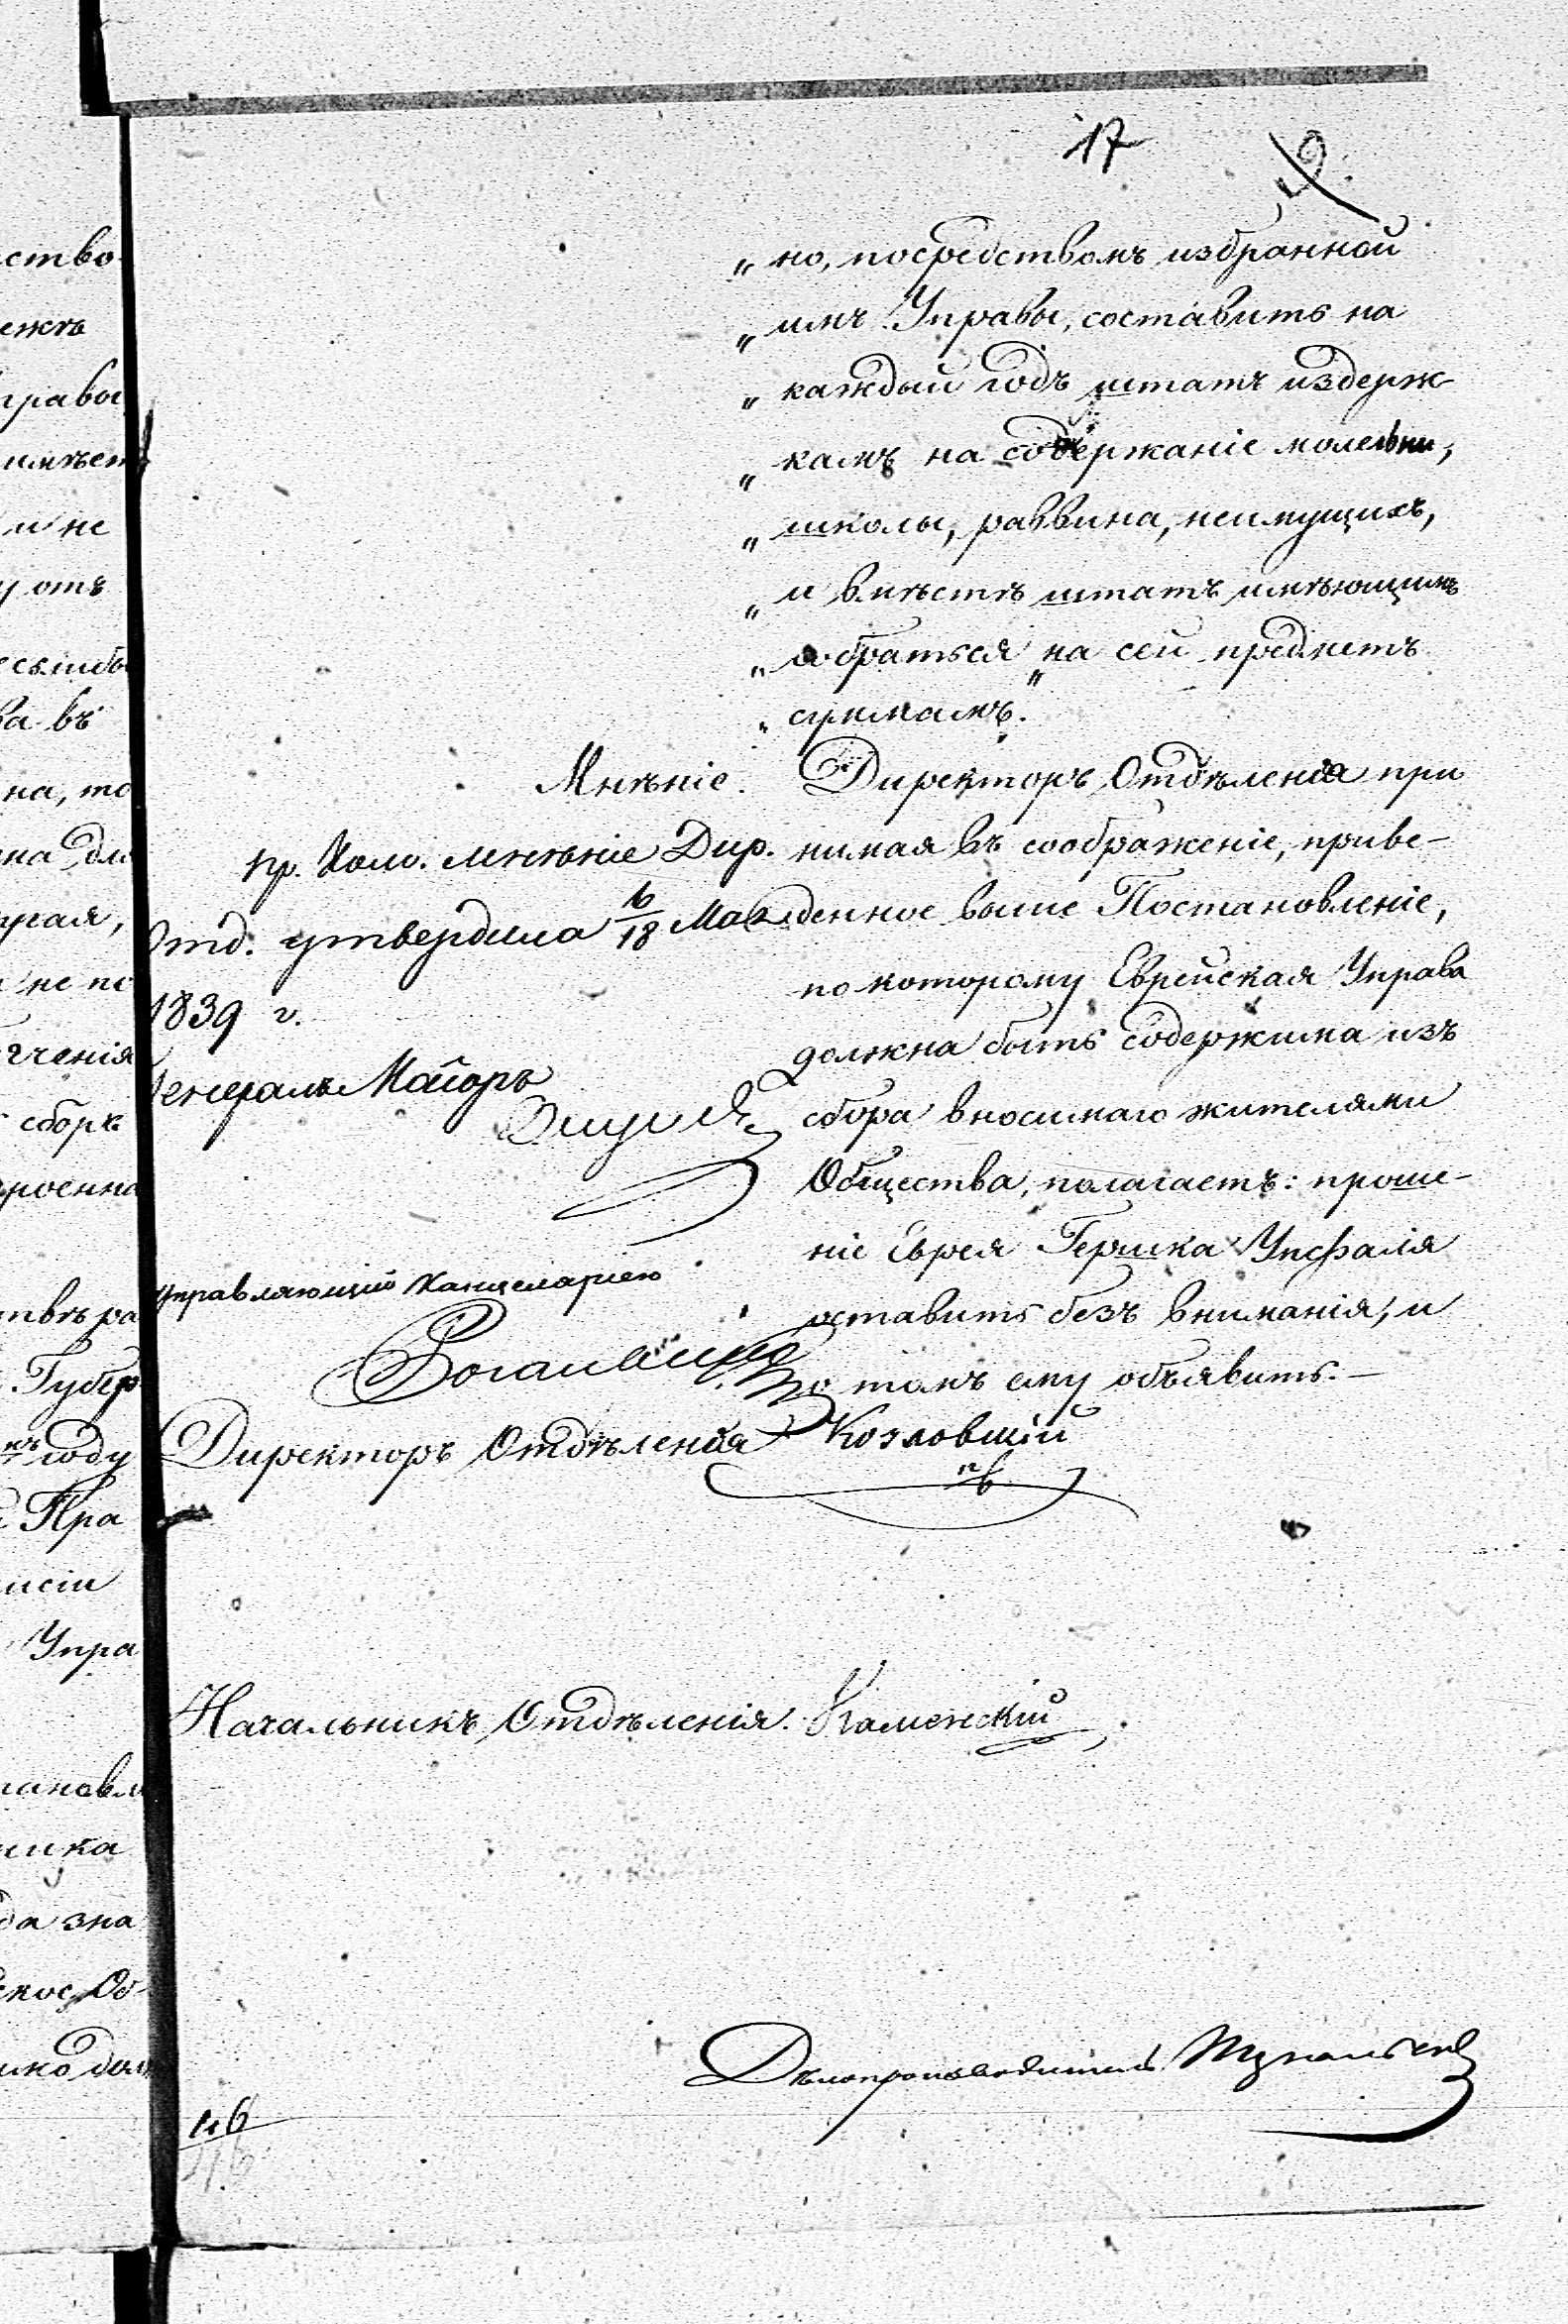 17
9.
„ но, посредствомъ избранной
„ имъ Управы, составить на
„ каждый годъ штатъ издерж-
„ камъ на содержаніе молельни,
„ школы, раввина, неимущихъ,
„ и вмѣстѣ штатъ имѣющимъ
„ собраться на сей предметъ
„ суммамъ."
Мнѣніе. Директоръ Отдѣленія при
нимая въ соображеніе, приве-
денное выше Постановленіе,
по которому Еврейская Управа
должна быть содержима изъ
сбора вносимаго жителями
Общества, полагаетъ: проше-
ніе Еврея Гершка Унсфаля
оставить безъ вниманія, и
о томъ ему объявить.—
Пр. Ком. мнѣніе Дир.
Отд. утвердила 6/18 Мая
1839 г.
Генералъ Маіоръ
Управляющій Канцеляріею
Директоръ Отдѣленія Козловскій
Начальникъ Отдѣленія. Каменскій
Дѣлопроизводитель
46
46
ство
ежъ
правы
имѣет
и не
у отъ
ва въ
на, то
на для
угая,
не по
гченія
сборъ
роенна
твѣ ра
Губер
году
Пра
исіи
Упра
ановл
шка
да зна
ское Об-